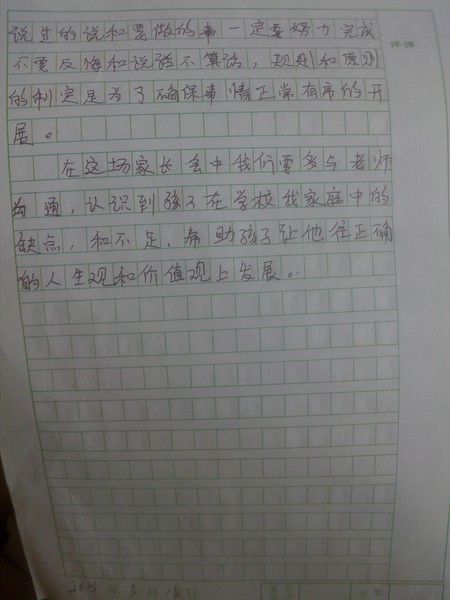 说过的说和要做的事一定要努力完成
评语
不要反悔和说话不算话，规则和原则
的制定是为了确保事情正常有序的开
展。
在这场家长会中我们要多与老师
沟通，认识到孩子在学校我家庭中的
缺点，和不足，帮助孩子让他往正确
的人生观和价值观上发展。